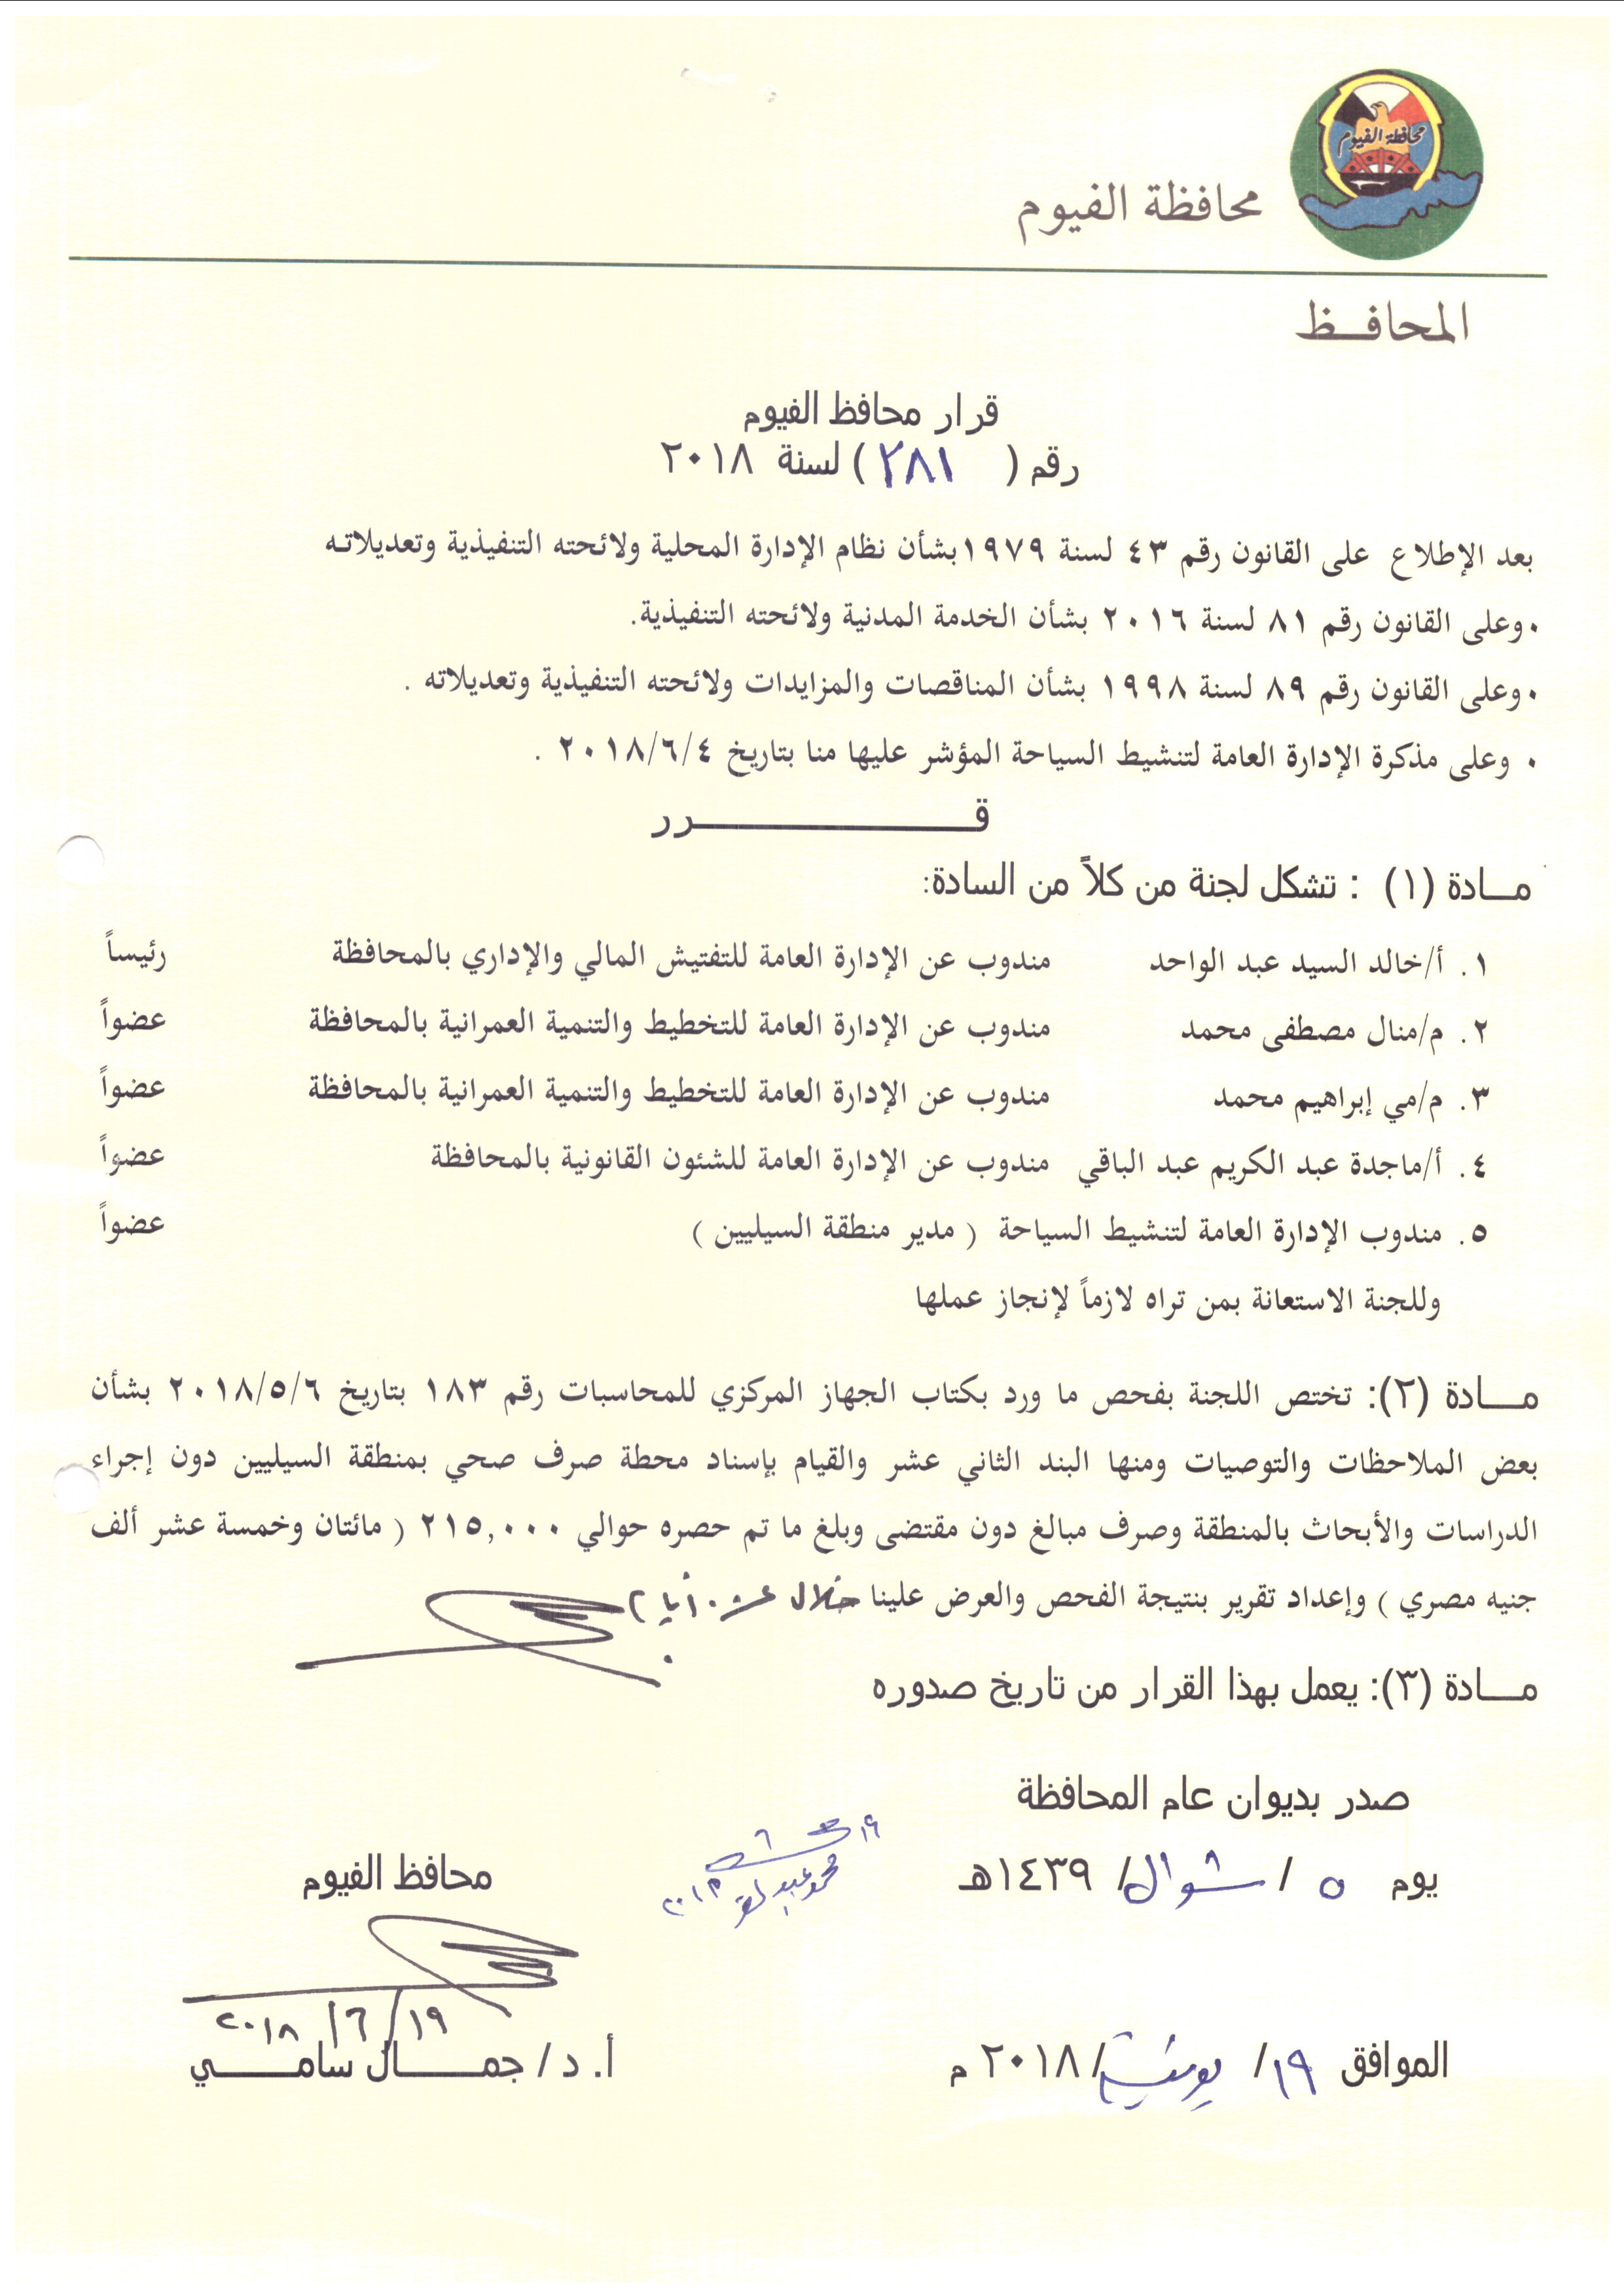 محافظة الفيوم
محافظة الفيوم
المحافــظ
قرار محافظ الفيوم
رقم ( ٢٨١ ) لسنة ٢٠١٨
بعد الإطلاع على القانون رقم ٤٣ لسنة ١٩٧٩ بشأن نظام الإدارة المحلية ولائحته التنفيذية وتعديلاته
• وعلى القانون رقم ٨١ لسنة ٢٠١٦ بشأن الخدمة المدنية ولائحته التنفيذية.
• وعلى القانون رقم ٨٩ لسنة ١٩٩٨ بشأن المناقصات والمزايدات ولائحته التنفيذية وتعديلاته .
• وعلى مذكرة الإدارة العامة لتنشيط السياحة المؤشر عليها منا بتاريخ ٢٠١٨/٦/٤ .
قـــــــــــرر
مـــادة (١) : تشكل لجنة من كلاً من السادة:
١. أ/خالد السيد عبد الواحد مندوب عن الإدارة العامة للتفتيش المالي والإداري بالمحافظة رئيساً
٢. م/منال مصطفى محمد مندوب عن الإدارة العامة للتخطيط والتنمية العمرانية بالمحافظة عضواً
٣. م/مي إبراهيم محمد مندوب عن الإدارة العامة للتخطيط والتنمية العمرانية بالمحافظة عضواً
٤. أ/ماجدة عبد الكريم عبد الباقي مندوب عن الإدارة العامة للشئون القانونية بالمحافظة عضواً
٥. مندوب الإدارة العامة لتنشيط السياحة ( مدير منطقة السيليين ) عضواً
وللجنة الاستعانة بمن تراه لازماً لإنجاز عملها
مـــادة (٢): تختص اللجنة بفحص ما ورد بكتاب الجهاز المركزي للمحاسبات رقم ١٨٣ بتاريخ ٢٠١٨/٥/٦ بشأن
بعض الملاحظات والتوصيات ومنها البند الثاني عشر والقيام بإسناد محطة صرف صحي بمنطقة السيليين دون إجراء
الدراسات والأبحاث بالمنطقة وصرف مبالغ دون مقتضى وبلغ ما تم حصره حوالي ٢١٥,٠٠٠ ( مائتان وخمسة عشر ألف
جنيه مصري ) وإعداد تقرير بنتيجة الفحص والعرض علينا خلال عشرة أيام
مـــادة (٣): يعمل بهذا القرار من تاريخ صدوره
صدر بديوان عام المحافظة
يوم ٥ / شوال / ١٤٣٩هـ
محافظ الفيوم
٢٠١٨/٦/١٩
الموافق ١٩ / يونيه / ٢٠١٨ م
أ. د/ جمـــال سامـــي